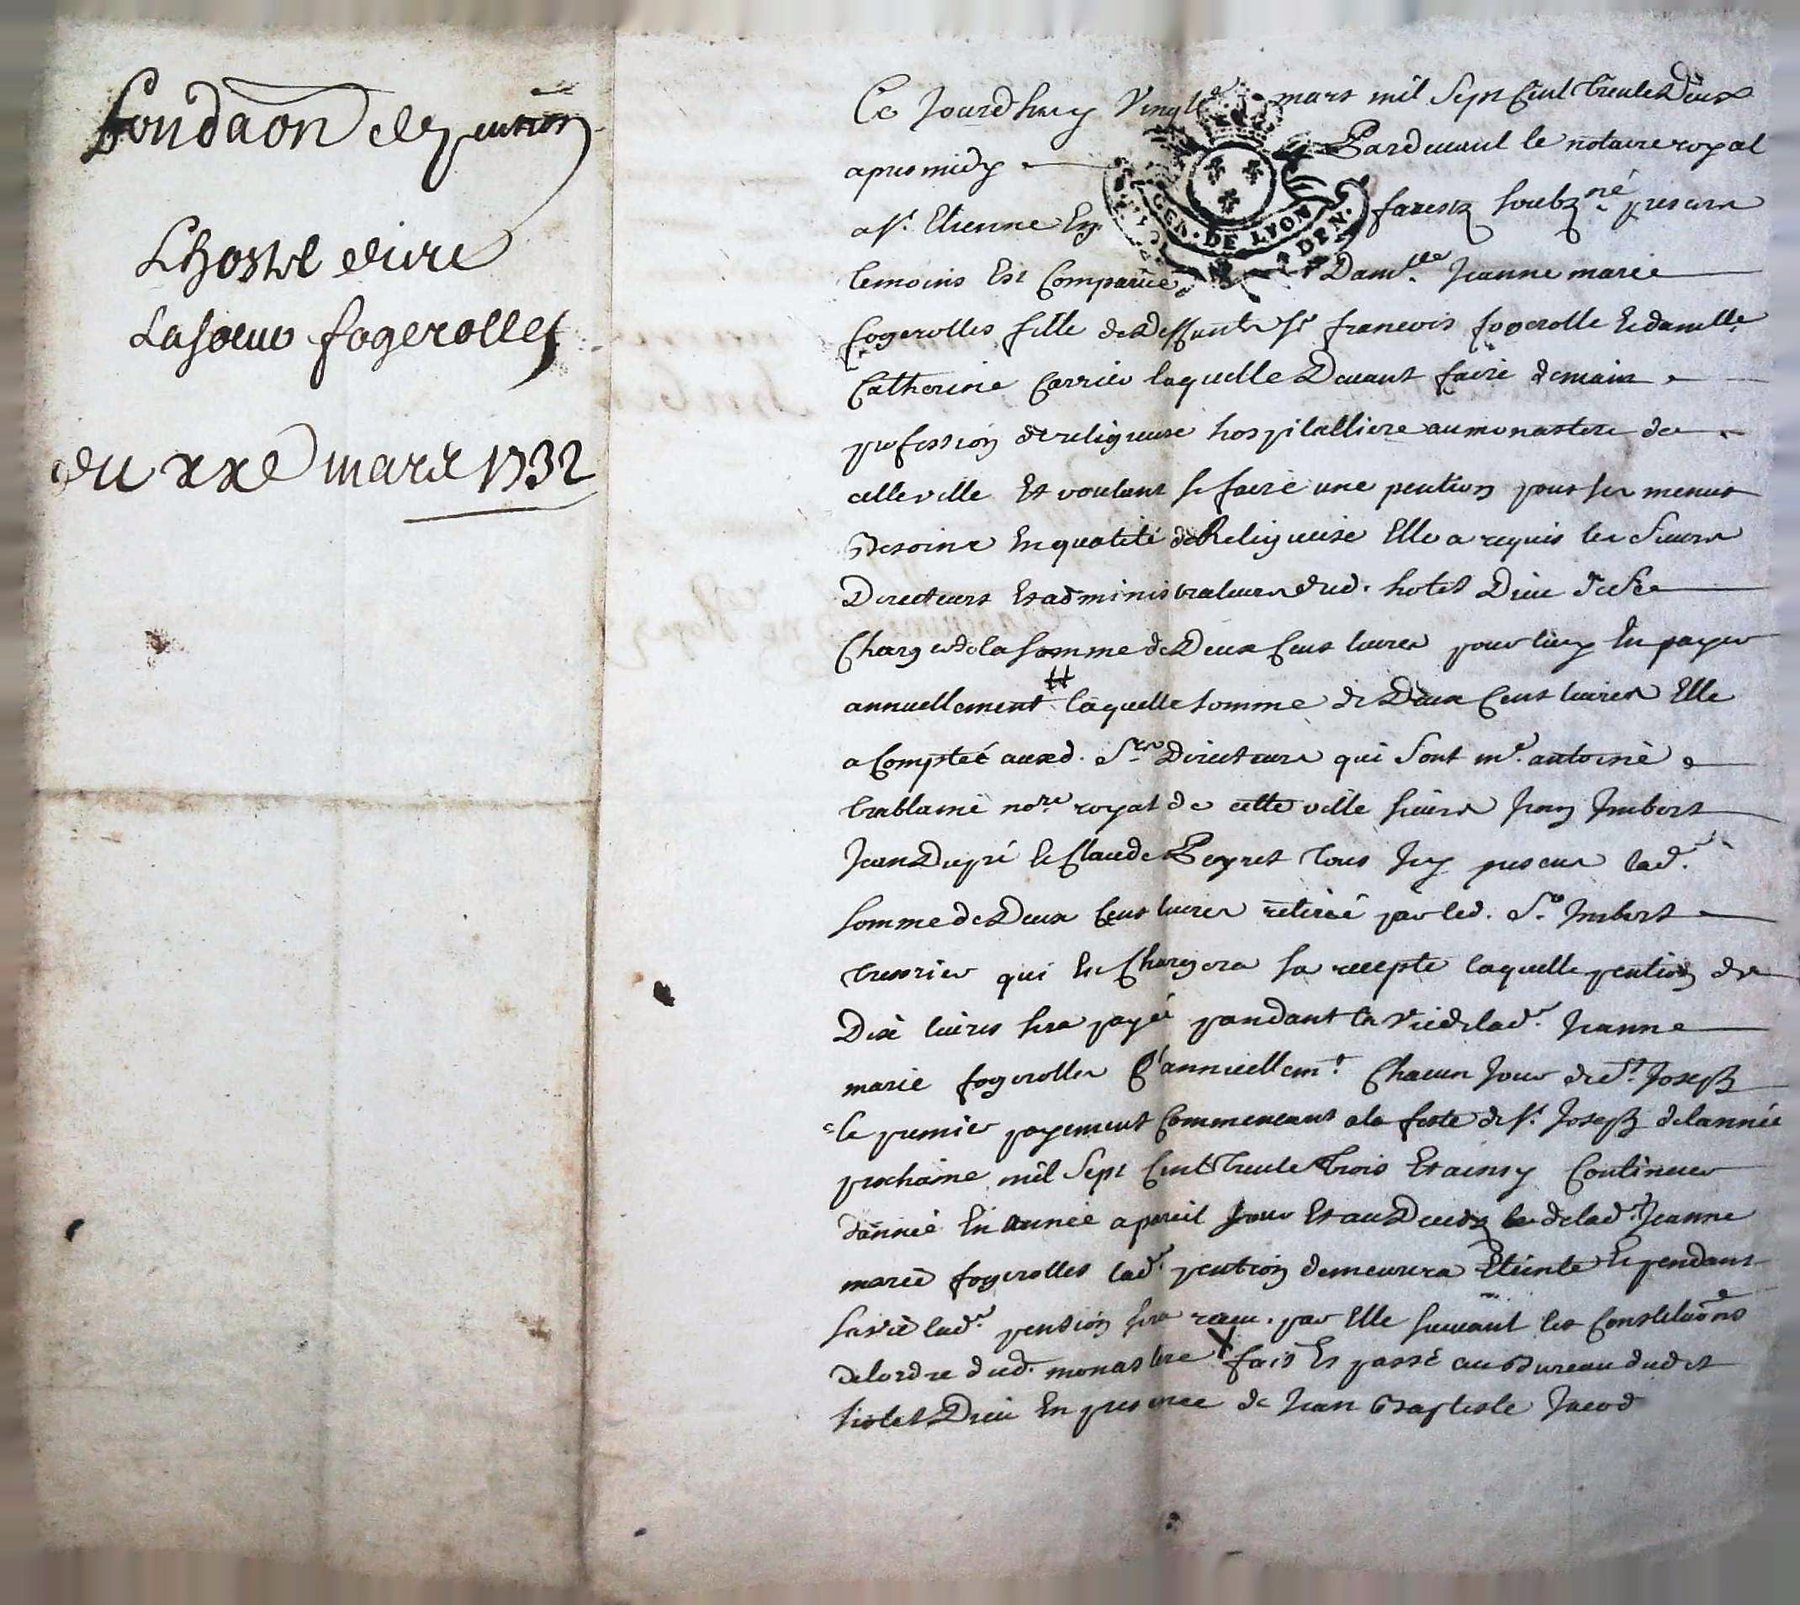 fondaõn de pention
Lhostel dieu
La soeur fogerolles
du xxe mars 1732
Ce Jourdhuy Vingt mars mil Sept Cent trente Deux
apres midy Pardevant le notaire royal
a st. Etienne En forestz soubzné presents
temoins Est Comparüe Damlle Jeanne marie
fogerolles fille de Deffunts sr francois fogerolle et damlle
Catherine Carrier laquelle Devant faire demain
profession de religieuse hospitalliere au monastere de
cette ville Et voulant se faire une pention pour ses menus
Besoins En qualité de Religieuse Elle a requis les Sieurs
Directeurs Et administrateurs dud. hotel Dieu de se
Charger de la somme de Deux Cent livres pour luy En payer
annuellement # laquelle somme de Deux Cent livres Elle
a Comptéé auxd. Srs Directeurs qui sont me. antoine
trablaine nore royal de cette ville sieurs Jean Imbert
Jean Dupré et Claude Peyret tous Icy presens lade.
somme de Deux Cent livres retiréé par led. Sr Imbert
tresorier qui En Chargera sa recepte laquelle pention de
Dix livres sera payéé pandant la vie de lade. Jeanne
marie fogerolles annuellemt. Chacun Jour de st. Joseph
le premier payement Commencant a la feste de st. Joseph de lannéé
prochaine mil Sept Cent trente trois Et ainsy Continuer
dannéé En annéé a pareil Jour Et au Decedz de lade. Jeanne
marie fogerolles lade. pention demeurera Eteinte Et pendant
sa vie lade. pention sera receu. par Elle suivant les Constitũons
de lordre dud. monastere X fait Et passé au Bureau dudit
hotel Dieu En presence de Jean Baptiste Jacod
GEN. DE LYON